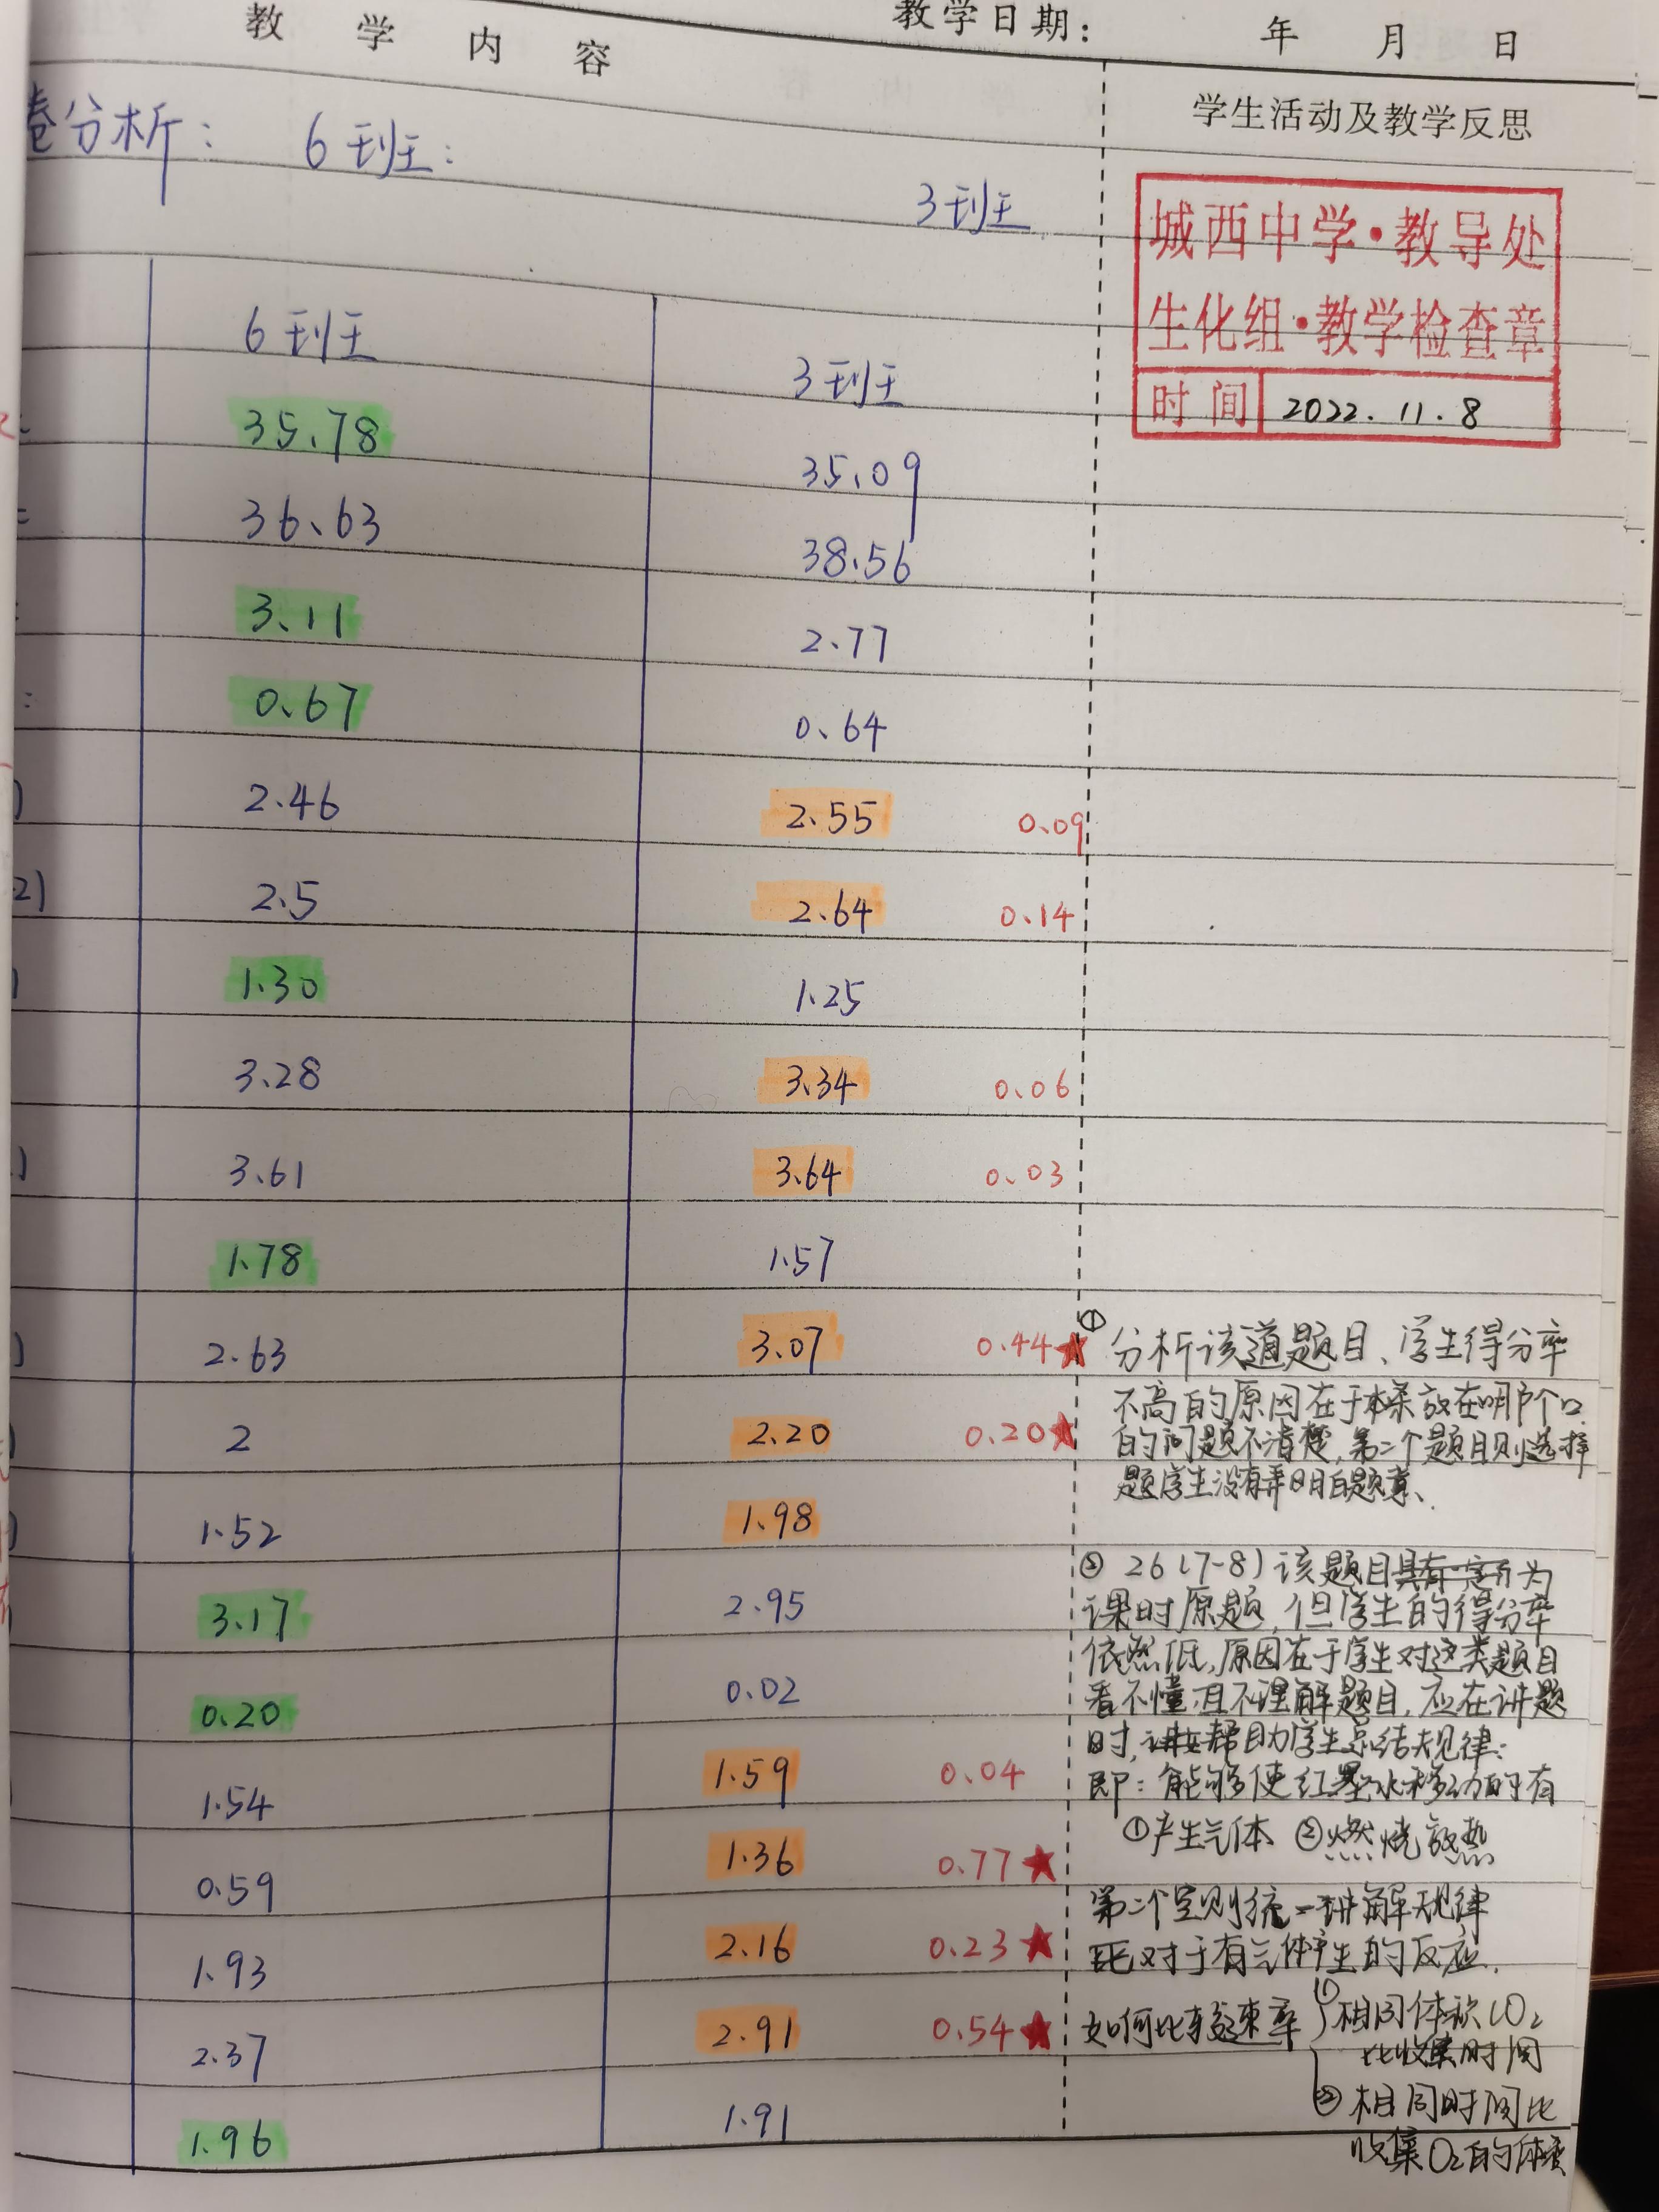 教学内容
教学日期： 年 月 日
学生活动及教学反思
卷分析： 6班：
3班
城西中学·教导处
生化组·教学检查章
时间 2022.11.8
6班 3班
35.78 35.09
36.63 38.56
3.11 2.77
0.67 0.64
2.46 2.55 0.09
2) 2.5 2.64 0.14
1.30 1.25
3.28 3.34 0.06
3.61 3.64 0.03
1.78 1.57
2.63 3.07 0.44★
2 2.20 0.20★
1.52 1.98
3.17 2.95
0.20 0.02
1.54 1.59 0.04
0.59 1.36 0.77★
1.93 2.16 0.23★
2.37 2.91 0.54★
1.96 1.91
① 分析该道题目、学生得分率
不高的原因在于木条放在哪个口
的问题不清楚，第二个题目则选择
题学生没有弄明白题意、
② 26(7-8)该题目具有一定为
课时原题，但学生的得分率
依然低，原因在于学生对这类题目
看不懂且不理解题目，应在讲题
时，帮助学生总结规律：
即：能够使红墨水移动的有
①产生气体 ②燃烧放热
第二个空则统一讲解规律
对于有气体产生的反应.
如何比较速率 ①相同体积O₂
比收集时间
②相同时间比
收集O₂的体积